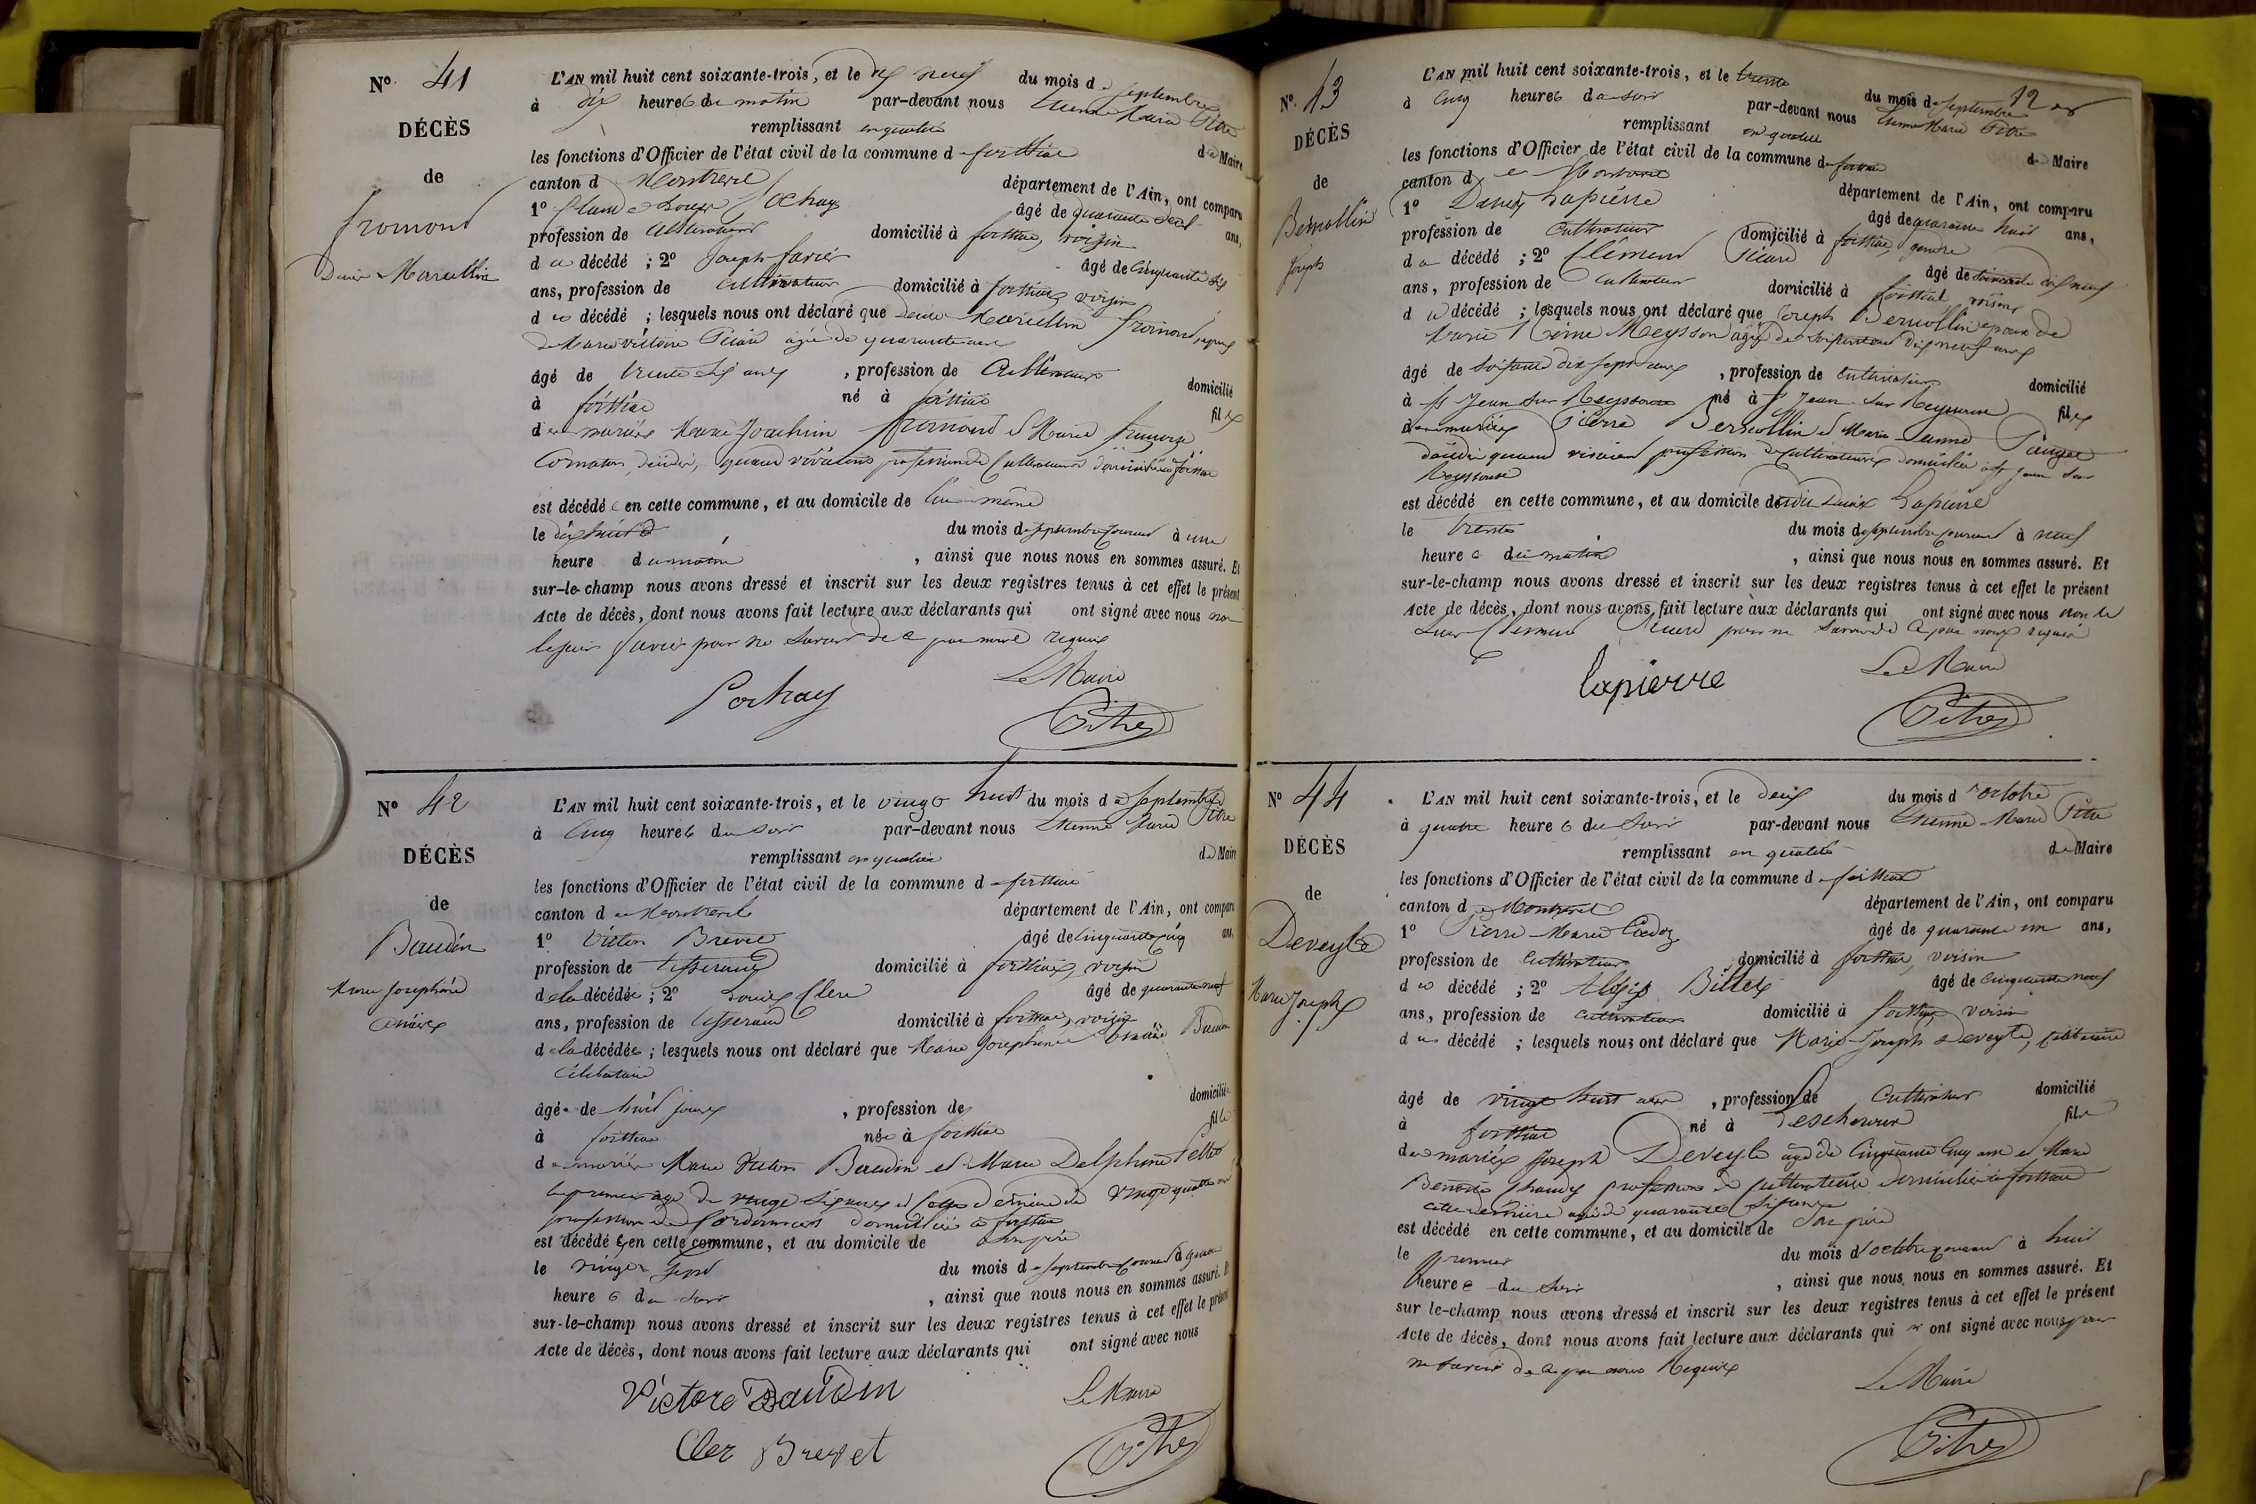 N° 41
DÉCÈS
de
Fromont
Denis Marcellin
L'AN mil huit cent soixante-trois, et le dix neuf du mois de septembre
à dix heures du matin par-devant nous Etienne Marie Pitre
remplissant en qualité de Maire
les fonctions d'Officier de l'état civil de la commune de foissiat
canton de Montrevel département de l'Ain, ont comparu
1° Claude Louis Pochay âgé de quarante ans,
profession de cultivateur domicilié à foissiat, voisin
du décédé ; 2° Joseph favier âgé de cinquante six
ans, profession de cultivateur domicilié à foissiat, voisin
du décédé ; lesquels nous ont déclaré que Denis Marcellin Fromont, époux
de Marie Victoire Picard âgée de quarante ans
âgé de trente six ans , profession de Cultivateur domicilié
à foissiat né à foissiat fils
des mariés Marie Joachim fromont et Marie françoise
Comaton, décédés, quand vivaient profession de Cultivateurs domiciliés à foissiat
est décédé en cette commune, et au domicile de lui-même
le dix huit du mois de septembre courant à une
heure du matin , ainsi que nous nous en sommes assuré. Et
sur-le-champ nous avons dressé et inscrit sur les deux registres tenus à cet effet le présent
Acte de décès, dont nous avons fait lecture aux déclarants qui ont signé avec nous non
le sieur favier pour ne savoir de ce par nous requis
Le Maire
Pochay
Pitre
N° 42
DÉCÈS
de
Baudin
Marie Joséphine
L'AN mil huit cent soixante-trois, et le vingt huit du mois de septembre
à cinq heures du soir par-devant nous Etienne Marie Pitre
remplissant en qualité de Maire
les fonctions d'Officier de l'état civil de la commune de foissiat
canton de Montrevel département de l'Ain, ont comparu
1° Victor Brevet âgé de cinquante cinq ans,
profession de tisserand domicilié à foissiat, voisin
de la décédée ; 2° Louis Clerc âgé de quarante neuf
ans, profession de tisserand domicilié à foissiat, voisin
de la décédée ; lesquels nous ont déclaré que Marie Joséphine Baudin
Célibataire
âgée de huit jours , profession de domiciliée
à foissiat née à foissiat fille
des mariés Marie Victor Baudin et Marie Delphine
le premier âgé de vingt six ans et cette dernière de vingt quatre ans
profession de Cordonniers domiciliés à foissiat
est décédée en cette commune, et au domicile de son père
le vingt sept du mois de septembre courant à quatre
heures du soir , ainsi que nous nous en sommes assuré. Et
sur-le-champ nous avons dressé et inscrit sur les deux registres tenus à cet effet le présent
Acte de décès, dont nous avons fait lecture aux déclarants qui ont signé avec nous
Le Maire
Victore Baudin
Cler Brevet
Pitre
N° 43
DÉCÈS
de
Bernollin
Joseph
L'AN mil huit cent soixante-trois, et le trente du mois de septembre
à cinq heures du soir par-devant nous Etienne Marie Pitre
remplissant en qualité de Maire
les fonctions d'Officier de l'état civil de la commune de foissiat
canton de Montrevel département de l'Ain, ont comparu
1° Denis Lapierre âgé de quarante huit ans,
profession de cultivateur domicilié à foissiat, gendre
du décédé ; 2° Clément Picard âgé de dix neuf
ans, profession de cultivateur domicilié à foissiat, voisin
du décédé ; lesquels nous ont déclaré que Joseph Bernollin époux de
Marie Meysson âgée de soixante dix neuf ans
âgé de soixante dix sept ans , profession de cultivateur domicilié
à St Jean sur Reyssouze né à St Jean sur Reyssouze fils
des mariés Pierre Bernollin et Marie Panget
décédés quand vivaient profession de Cultivateurs domiciliés à St Jean sur
Reyssouze
est décédé en cette commune, et au domicile dudit Denis Lapierre
le trente du mois de septembre courant à neuf
heures du matin , ainsi que nous nous en sommes assuré. Et
sur-le-champ nous avons dressé et inscrit sur les deux registres tenus à cet effet le présent
Acte de décès, dont nous avons fait lecture aux déclarants qui ont signé avec nous non le
sieur Clément Picard pour ne savoir de ce par nous requis
Le Maire
lapierre
Pitre
N° 44
DÉCÈS
de
Deveyle
Marie Joseph
L'AN mil huit cent soixante-trois, et le deux du mois d'octobre
à quatre heures du soir par-devant nous Etienne Marie Pitre
remplissant en qualité de Maire
les fonctions d'Officier de l'état civil de la commune de foissiat
canton de Montrevel département de l'Ain, ont comparu
1° Pierre Marie Cadoz âgé de quarante un ans,
profession de cultivateur domicilié à foissiat, voisin
du décédé ; 2° Alexis Billet âgé de cinquante neuf
ans, profession de cultivateur domicilié à foissiat voisin
du décédé ; lesquels nous ont déclaré que Marie Joseph Deveyle, célibataire
âgé de vingt huit ans , profession de Cultivateur domicilié
à foissiat né à Lescheroux fils
des mariés Joseph Deveyle âgé de cinquante cinq ans et Marie
Benoîte profession de Cultivateurs domiciliés à foissiat
cette dernière âgée de quarante six ans
est décédé en cette commune, et au domicile de son père
le premier du mois d'octobre courant à huit
heures du soir , ainsi que nous nous en sommes assuré. Et
sur le-champ nous avons dressé et inscrit sur les deux registres tenus à cet effet le présent
Acte de décès, dont nous avons fait lecture aux déclarants qui n'ont signé avec nous pour
ne savoir de ce par nous Requis
Le Maire
Pitre